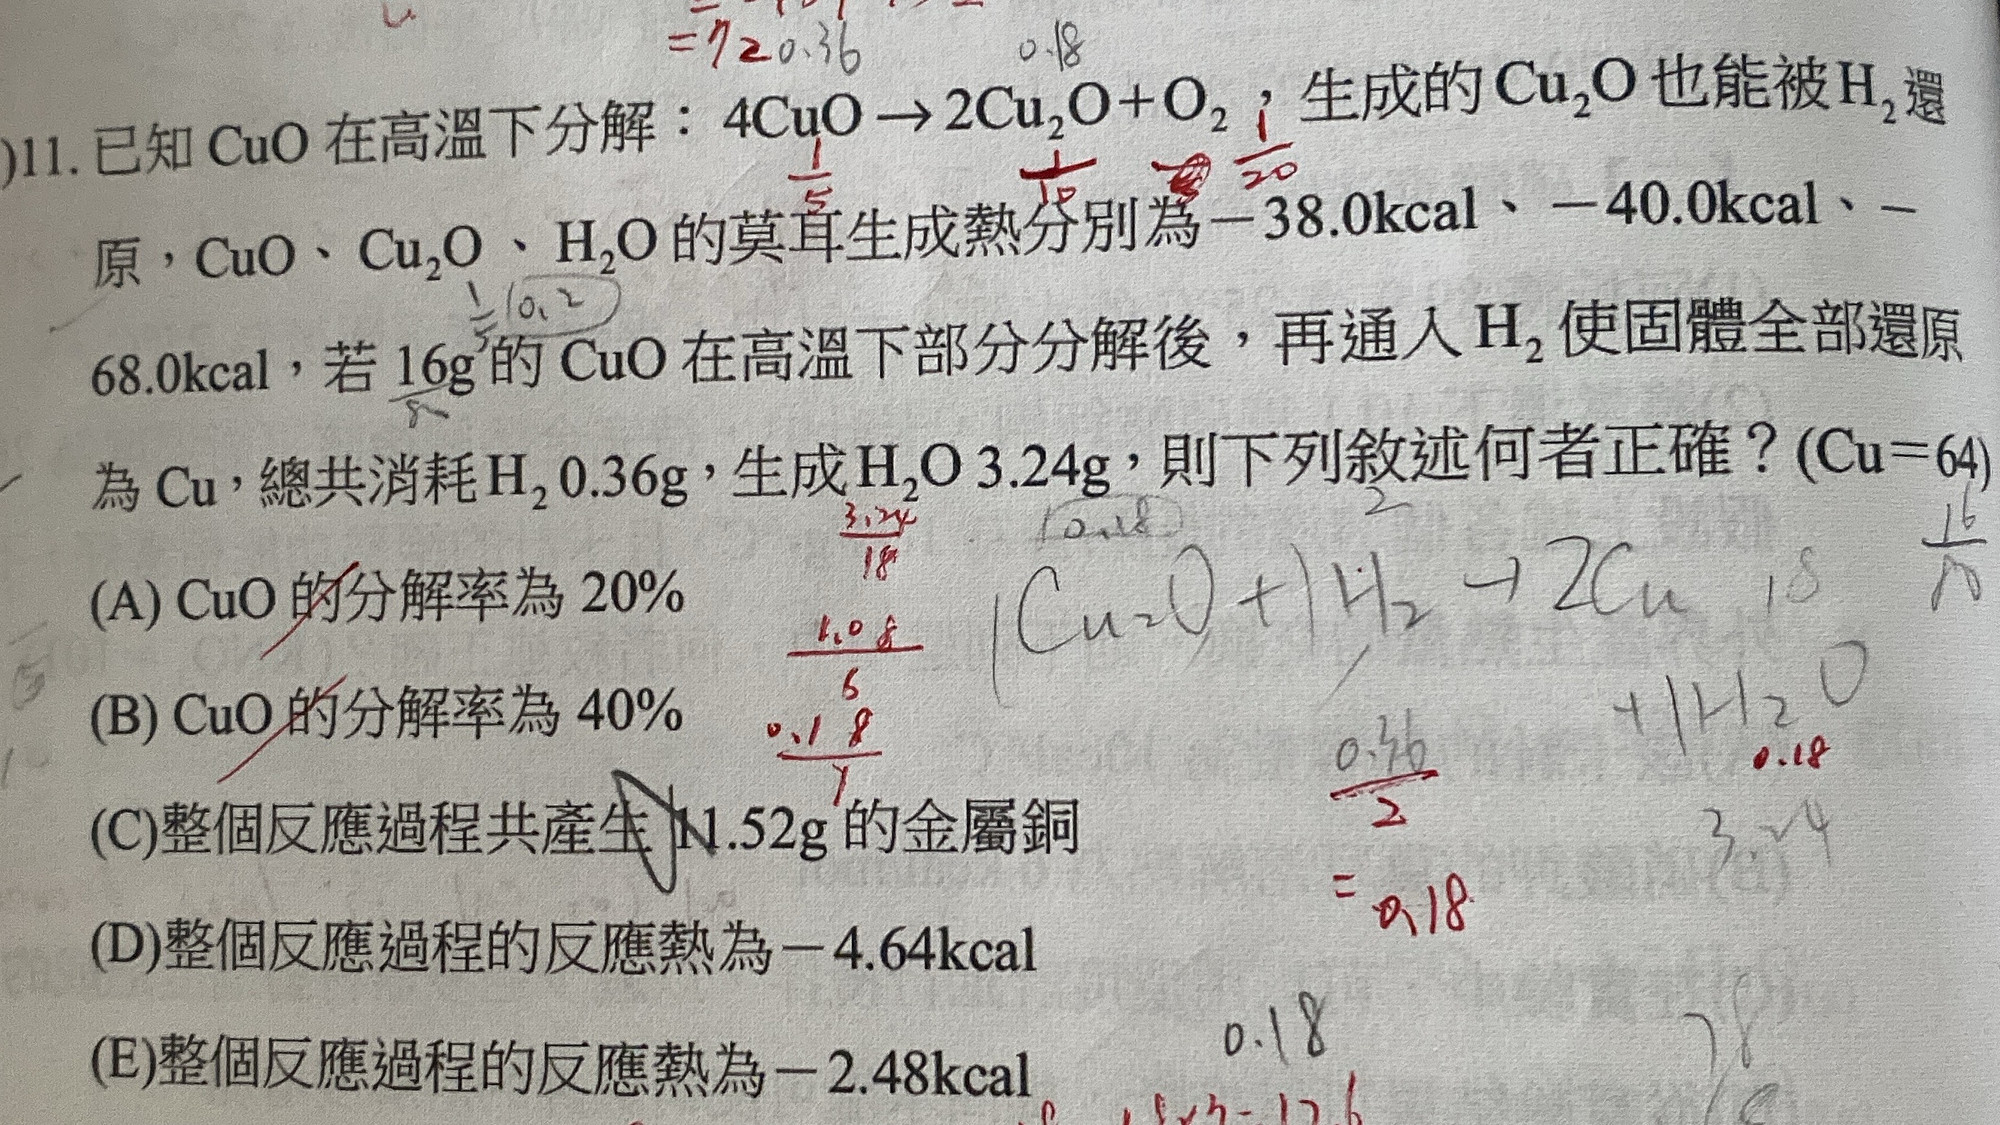 =72 0.36 0.18
)11. 已知 CuO 在高溫下分解：4CuO→2Cu₂O+O₂，生成的 Cu₂O 也能被 H₂ 還
1/5 1/10 1/20
原，CuO、Cu₂O、H₂O 的莫耳生成熱分別為－38.0kcal、－40.0kcal、－
0.2
68.0kcal，若 16g 的 CuO 在高溫下部分分解後，再通入 H₂ 使固體全部還原
為 Cu，總共消耗 H₂ 0.36g，生成 H₂O 3.24g，則下列敘述何者正確？(Cu＝64)
3.24/18 0.18 2 16
(A) CuO 的分解率為 20%
1Cu₂O+1H₂→2Cu 18
+1H₂O
1.08/6
(B) CuO 的分解率為 40%
0.18/1
0.36/2
=0.18
0.18
3.24
(C)整個反應過程共產生 11.52g 的金屬銅
(D)整個反應過程的反應熱為－4.64kcal
0.18
(E)整個反應過程的反應熱為－2.48kcal